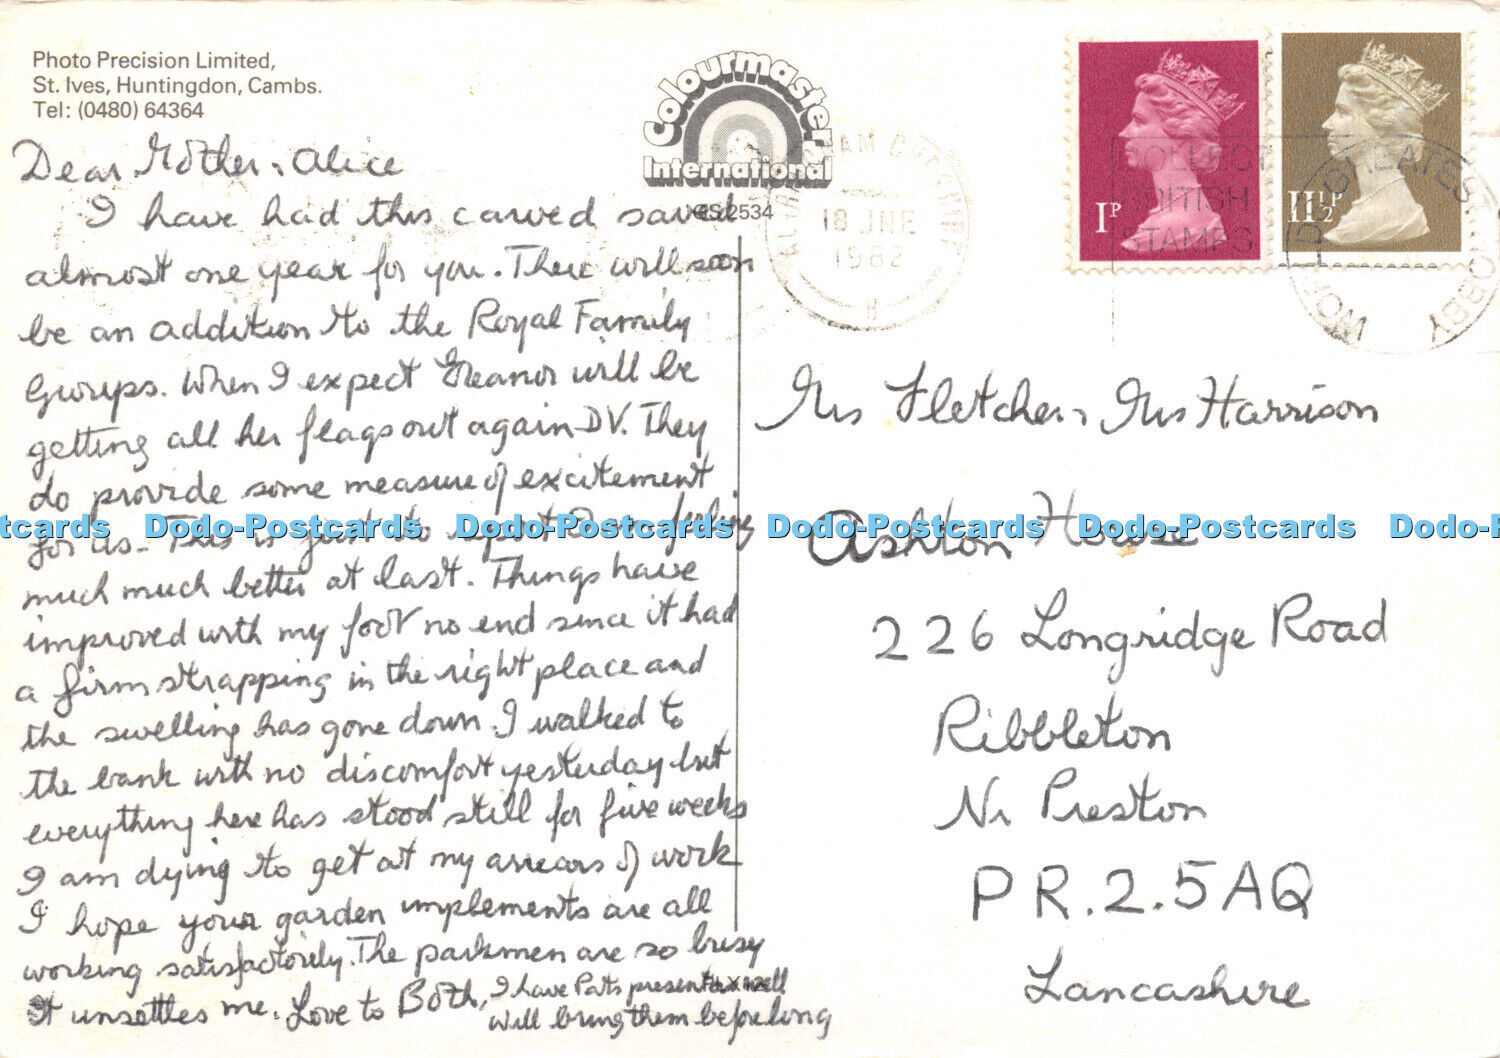 Photo Precision Limited,
St. Ives, Huntingdon, Cambs.
Tel: (0480) 64364
Colourmaster
International
CS 2534
18 JNE
1982
COLLECT
BRITISH
STAMPS
WORLD'S GREATEST HOBBY
1P
11½P
Dear Mother & Alice
I have had this carved saved
almost one year for you. There will soon
be an addition to the Royal Family
Groups. When I expect Eleanor will be
getting all her flags out again DV. They
do provide some measure of excitement
for us - This is just to report I am feeling
much much better at last. Things have
improved with my foot no end since it had
a firm strapping in the right place and
the swelling has gone down. I walked to
the bank with no discomfort yesterday but
everything here has stood still for five weeks
I am dying to get at my arrears of work
I hope your garden implements are all
working satisfactorily. The parkmen are so busy
It unsettles me. Love to Both,
I have Pats present as well
will bring them before long
Mrs Fletcher & Mrs Harrison
Ashton House
226 Longridge Road
Ribbleton
Nr Preston
PR.2.5AQ
Lancashire
Dodo-Postcards Dodo-Postcards Dodo-Postcards Dodo-Postcards Dodo-P